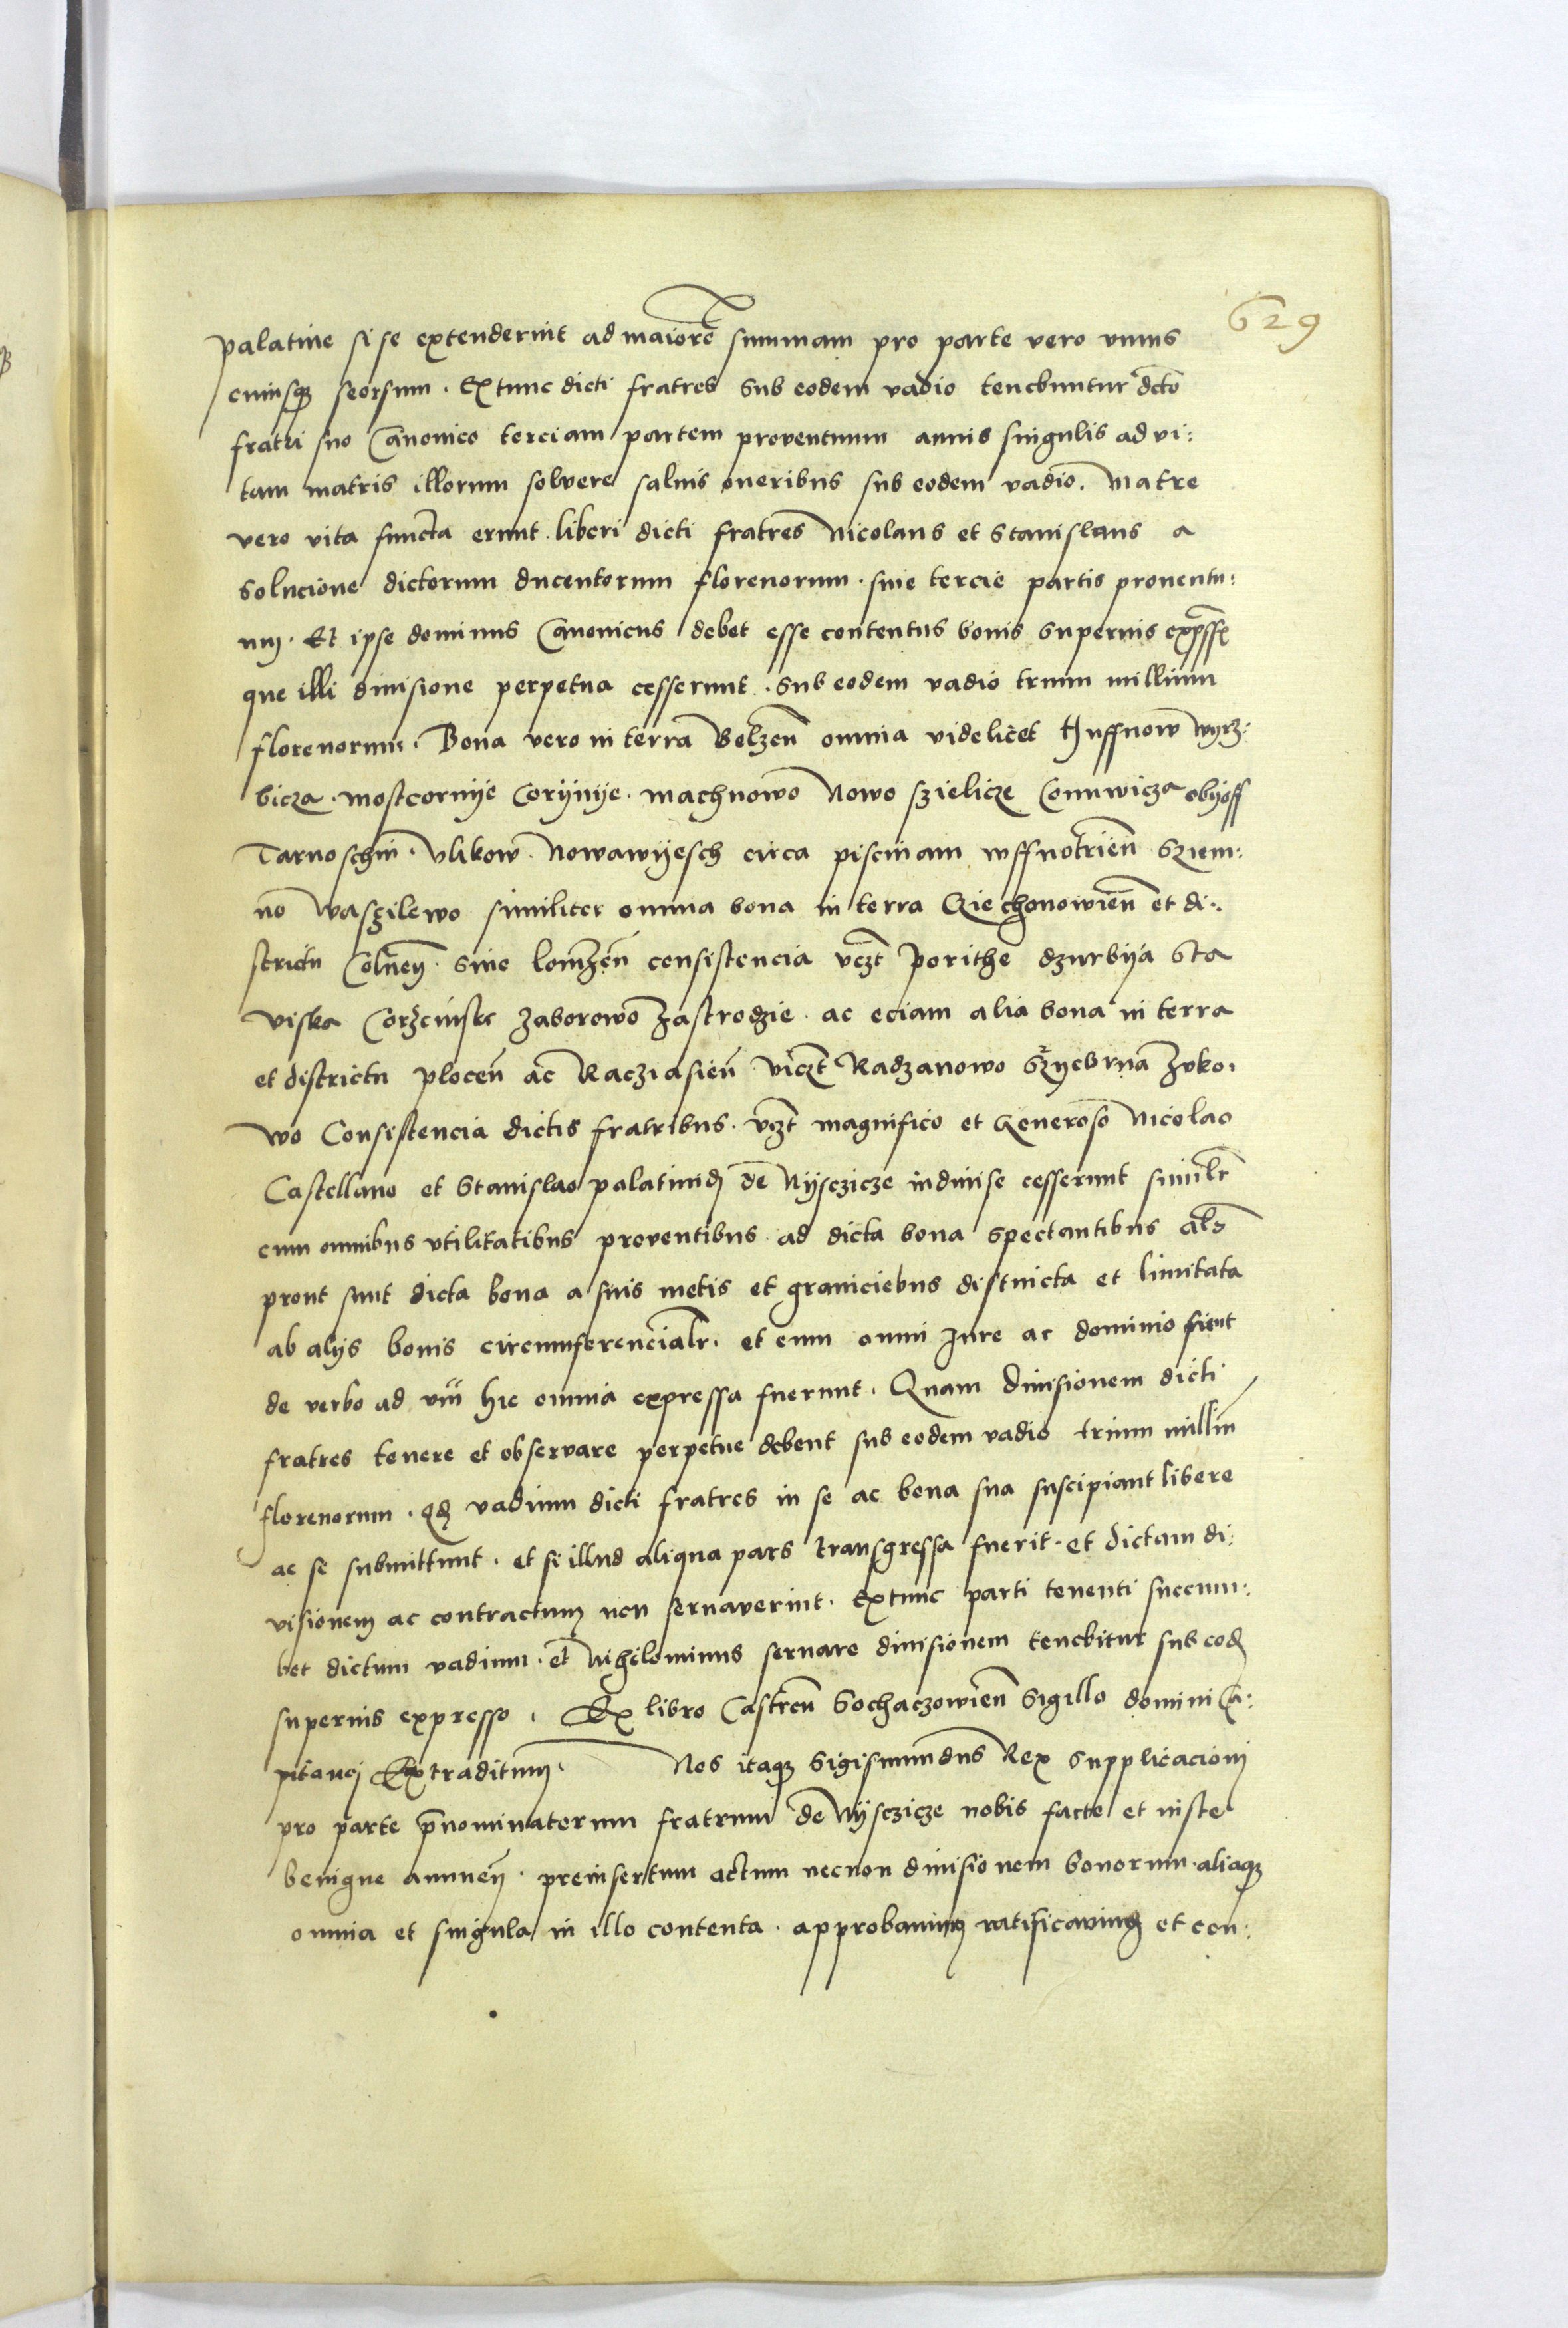 629
palatine si se extenderint ad maiorẽ summam pro parte vero unius
cuiusq3 seorsum. Extunc dicti fratres sub eodem vadio tenebuntur dcto
fratri suo Canonico terciam partem proventuum annis singulis ad vi:
tam matris illorum solvere salvis oneribus sub eodem vadio. Matre
vero vita functa erunt. liberi dicti fratres Nicolaus et Stanislaus a
solucione dictorum ducentorum florenorum. sive tercie partis proventu:
um. Et ipse dominus Canonicus debet esse contentus bonis superius expsse
que illi divisione perpetua cesserunt. sub eodem vadio trium millium
florenorum. Bona vero in terra Belzeñ omnia videlicet Huffnow wyrz:
bicza. mostcornye Corynye. machnowo Nowo szielicze Connwicza obyoff
Tarnoschin. Ulikow. Nowawyesch circa piscinam wffnotrieñ Sziem:
no Waszilewo similiter omnia bona in terra Cziechonowieñ et di:
strictu Colneñ. sive lomzeñ consistencia vczt porithe dzurbya Sta
viska Corzeniste Zaborowo Zastrodzie. ac eciam alia bona in terra
et districtu ploceñ ac Racziasieñ viczt Radzanowo Srzyebrna Zuko:
wo Consistencia dictis fratribus. vczt magnifico et Generoso Nicolao
Castellano et Stanislao palatinid de Nysczicze indivise cesserunt similr
cum omnibus utilitatibus proventibus ad dicta bona spectantibus als
prout sunt dicta bona a suis metis et graniciebus distincta et limitata
ab alys bonis circumferencialr. et cum omni Jure ac dominio sicut
de verbo ad vm̃ hic omnia expressa fuerunt. Quam divisionem dicti
fratres tenere et observare perpetue debent sub eodem vadio trium milliũ
florenorum. qd vadium dicti fratres in se ac bona sua suscipiant libere
ac se submittunt. et si illud aliqua pars transgressa fuerit. et dictam di:
visionem ac contractum non servaverint. Extunc parti tenenti succum:
bet dictum vadium. et Nihilominus servare divisionem tenebitur sub eod
superius expresso. Ex libro Castreñ Sochaczowieñ Sigillo domini Ca:
pitanei Extraditum. Nos itaq3 Sigismundus Rex supplicacioni
pro parte p̃nominatorum fratrum de Nysczicze nobis facte et iuste
benigne annueñ. preinsertum actum necnon divisionem bonorum. aliaq3
omnia et singula in illo contenta. approbavimus ratificavimus et con: